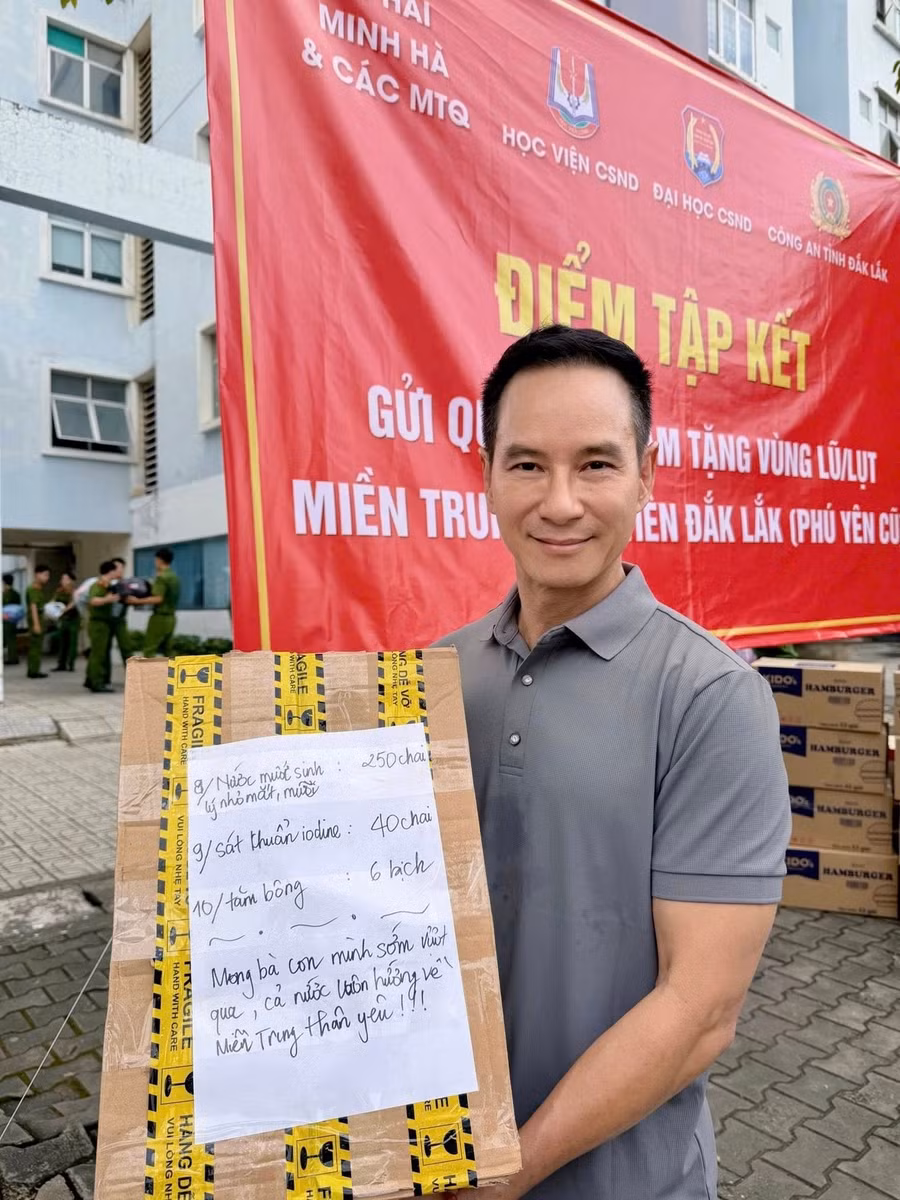 HẢI
MINH HÀ
& CÁC MTQ
HỌC VIỆN CSND
ĐẠI HỌC CSND
CÔNG AN TỈNH ĐẮK LẮK
ĐIỂM TẬP KẾT
GỬI TẶNG VÙNG LŨ/LỤT
MIỀN ĐẮK LẮK (PHÚ YÊN CŨ
8/ Nước muối sinh : 250 chai
lý nhỏ mắt, mũi
9/ sát khuẩn iodine : 40 chai
10/ tăm bông : 6 bịch
Mong bà con mình sớm vượt
qua, cả nước luôn hướng về
Miền Trung thân yêu!!!
FRAGILE
HAND WITH CARE
VUI LÒNG NHẸ TAY
FRAGILE
HAND WITH CARE
HÀNG DỄ
VUI LÒN
AGILE
WITH CARE
NG DỄ VỠ
LÒNG NHẸ TAY
KIDO's HAMBURGER
KIDO's HAMBURGER
KIDO's HAMBURGER
KIDO's HAMBURGER